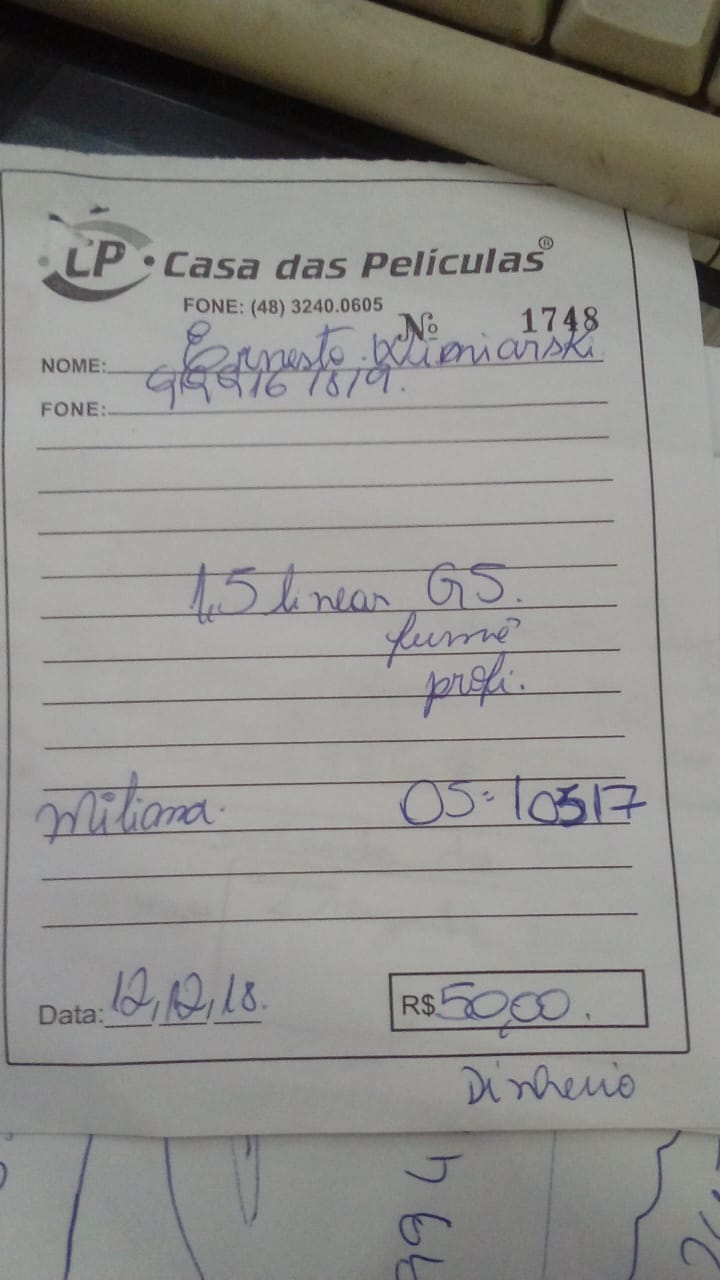 LP • Casa das Películas®
FONE: (48) 3240.0605
Nº 1748
NOME: Ernesto
FONE: 999161819.
1,5 linear G5.
fumê
profi.
Miliana. OS=10517
Data: 12,12,18.
R$ 50,00.
Dinheiro
394